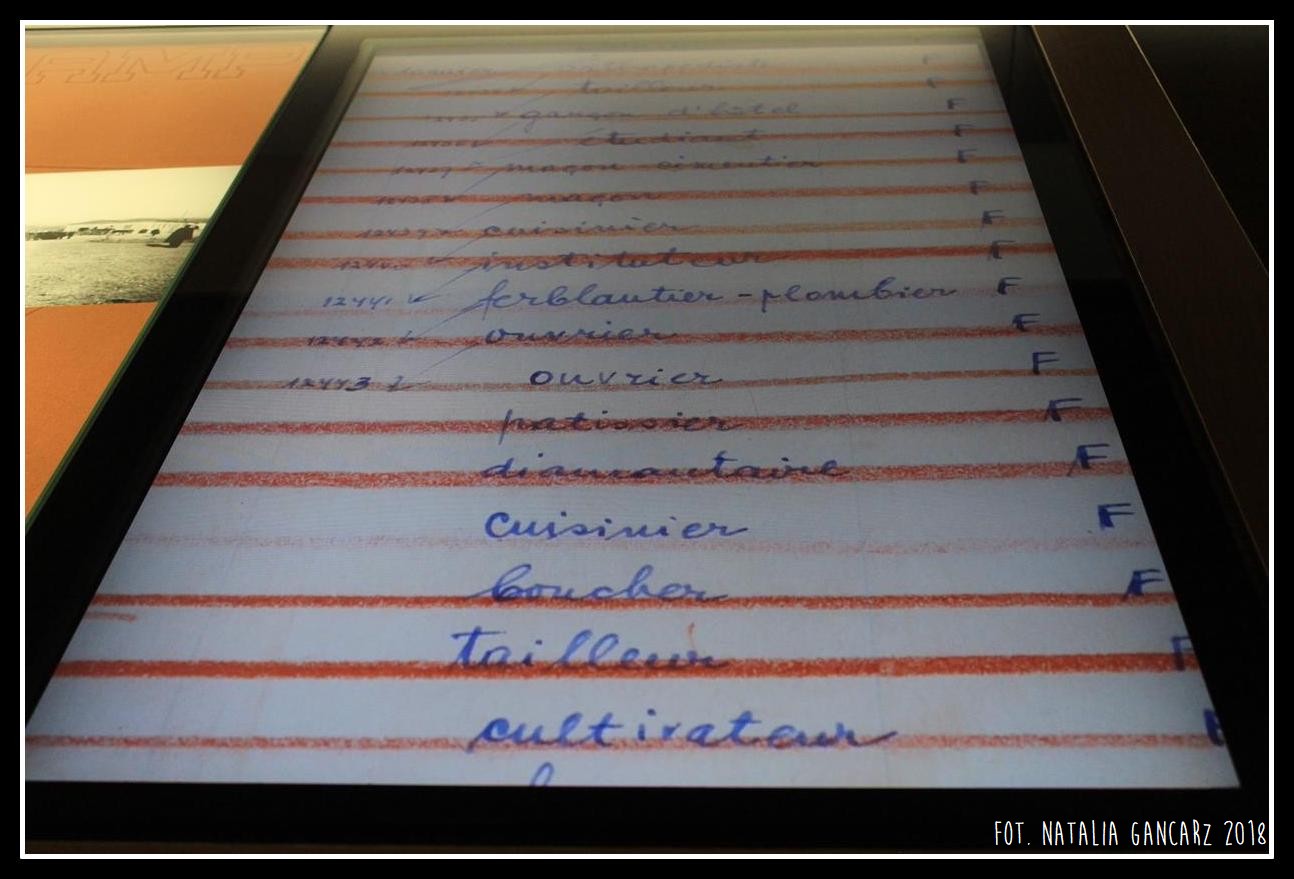 tailleur F
garçon d'hôtel F
étudiant F
maçon cimentier F
maçon F
cuisinier F
instituteur F
12441 ferblantier - plombier F
12442 ouvrier F
12443 ouvrier F
patissier F
diamantaire F
cuisinier F
boucher F
tailleur F
cultivateur
FOT. NATALIA GANCARZ 2018